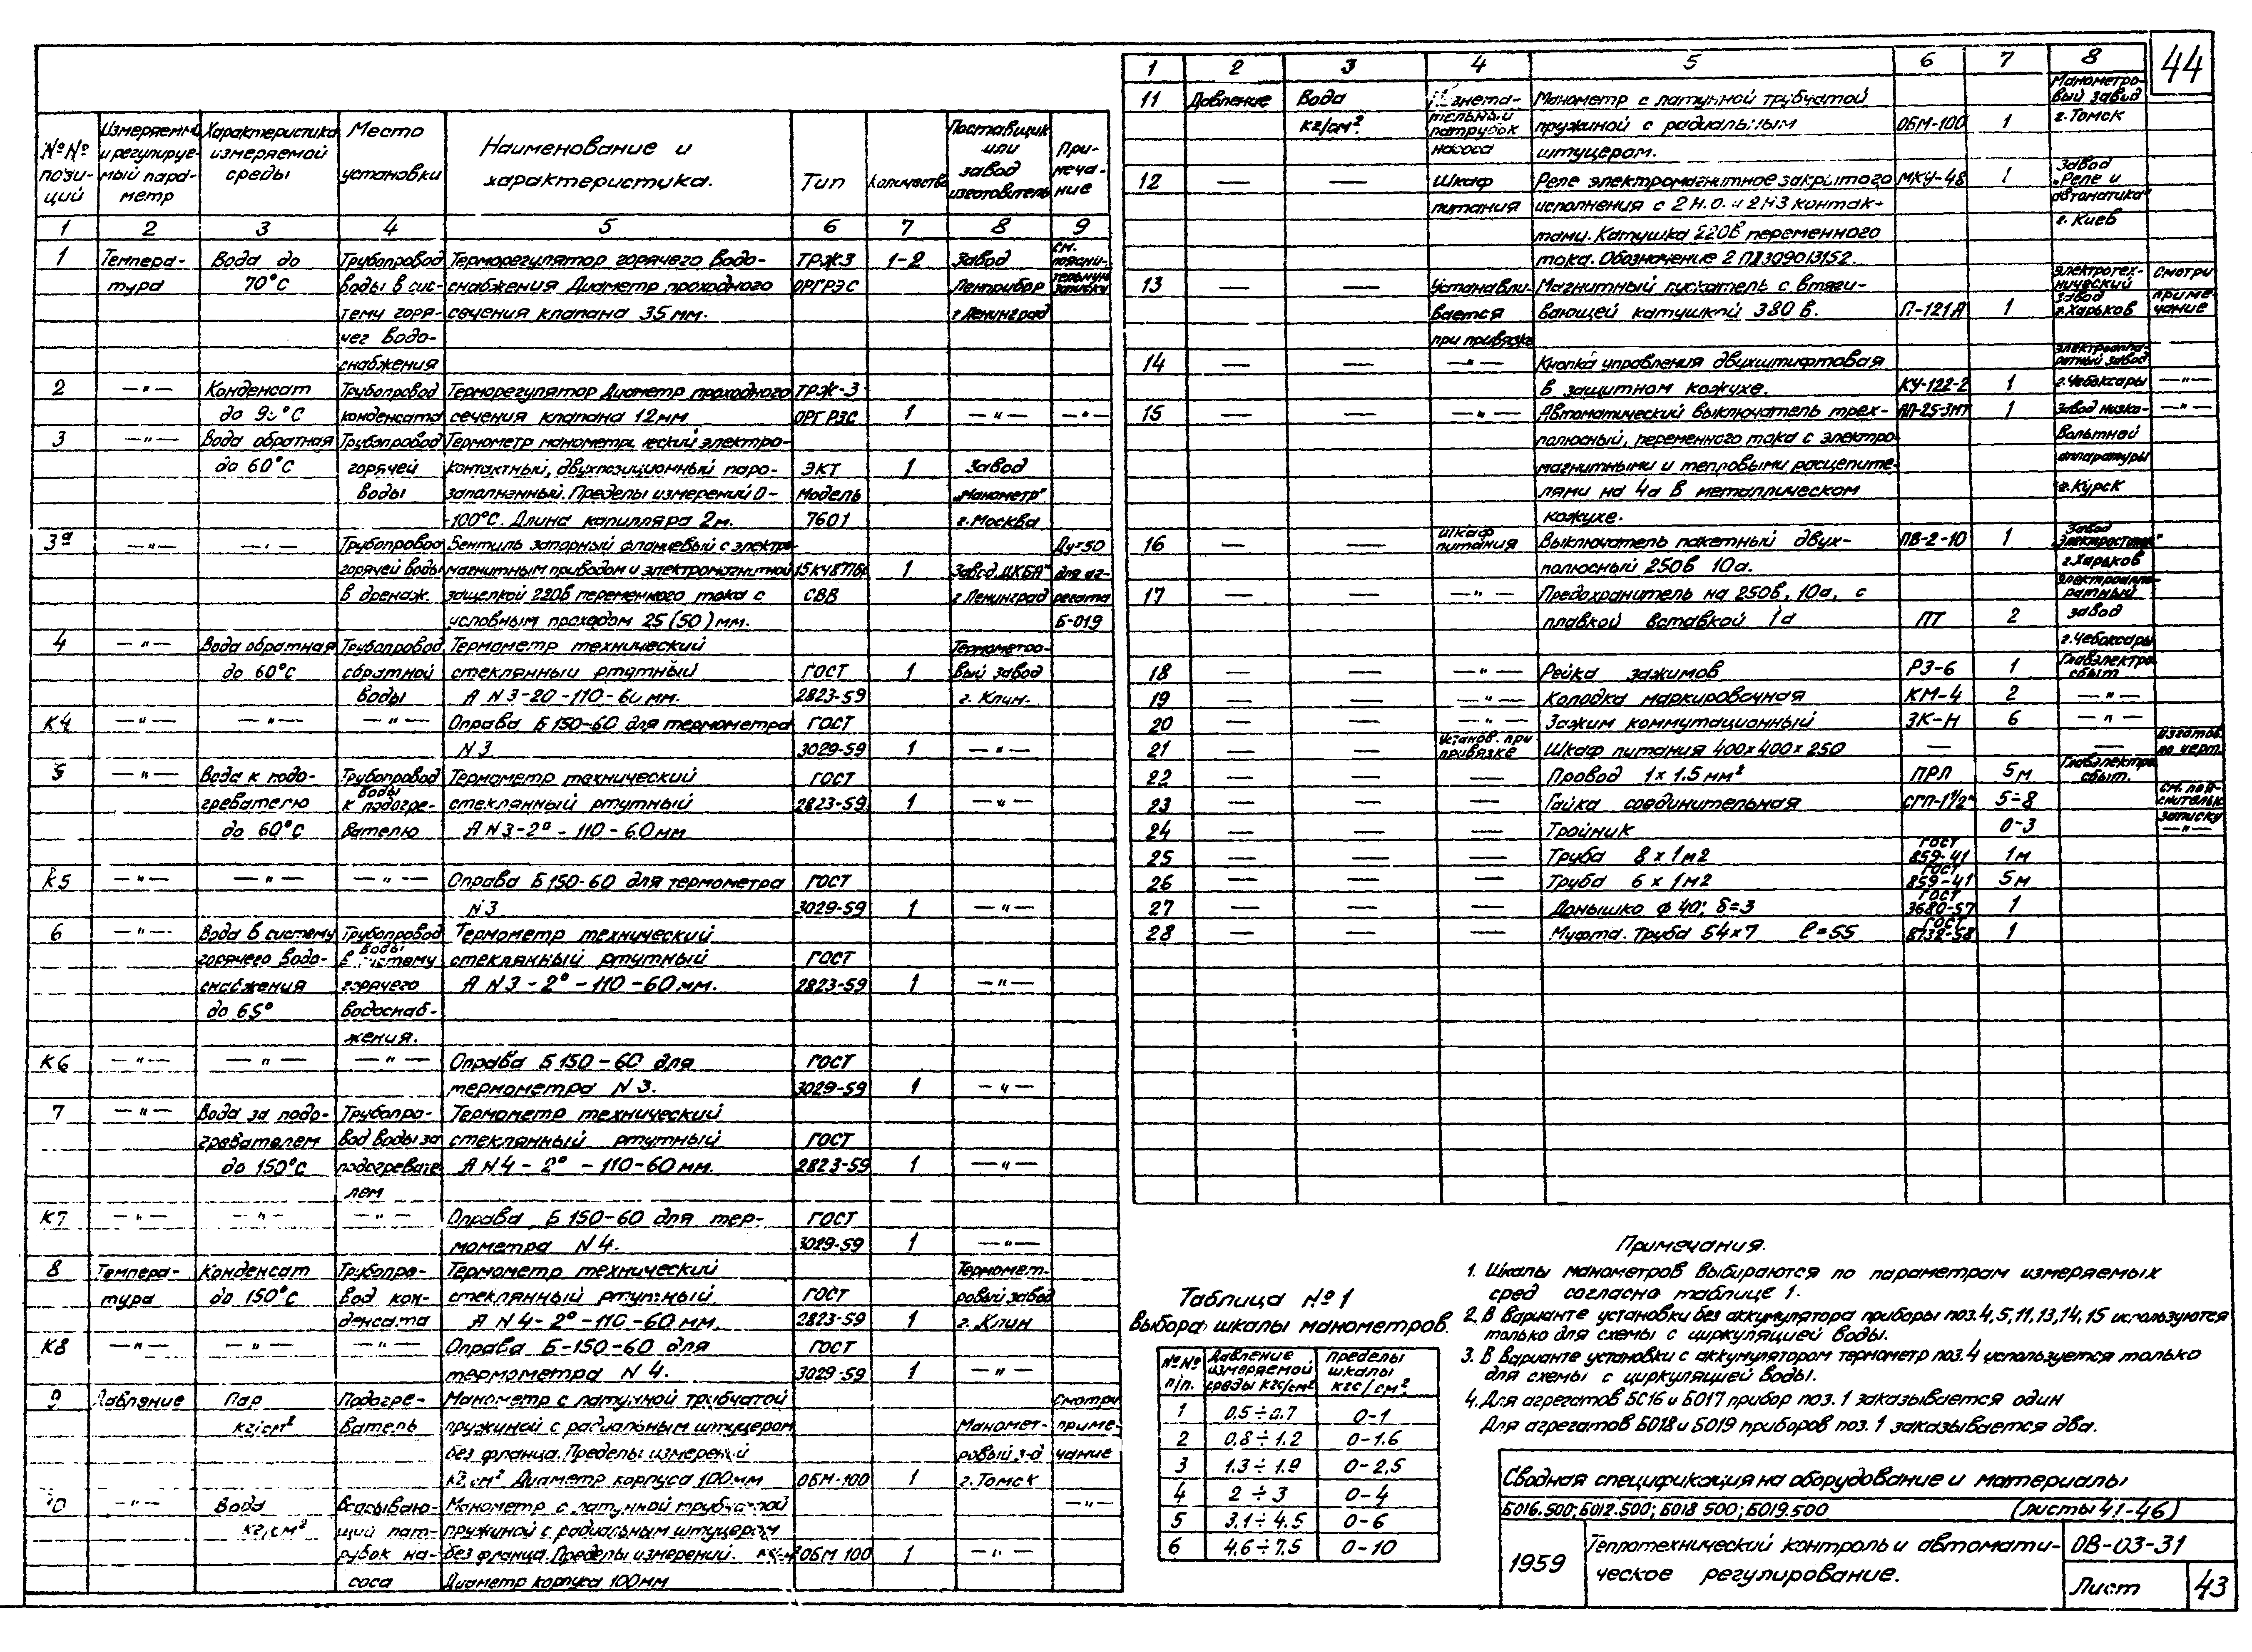 44
№№ пози-ций | Измеряемый и регулируе-мый пара-метр | Характеристика измеряемой среды | Место установки | Наименование и характеристика. | Тип | Количество | Поставщик или завод изготовитель | При-меча-ние
1 | 2 | 3 | 4 | 5 | 6 | 7 | 8 | 9
1 | Темпера- | Вода до | Трубопровод | Терморегулятор горячего водо- | ТРЖ3 | 1-2 | Завод | см. поясни-
тура | 70°С | воды в сис- | снабжения Диаметр проходного | ОРГРЭС | Ленприбор | тельную записку
тему горя- | сечения клапана 35 мм. | г Ленинград
чег водо-
снабжения
2 | —"— | Конденсат | Трубопровод | Терморегулятор Диаметр проходного | ТРЖ-3
до 95°С | конденсата | сечения клапана 12 мм | ОРГРЭС | 1 | —"— | —"—
3 | —"— | Вода обратная | Трубопровод | Термометр манометрический электро-
до 60°С | горячей | контактный, двухпозиционный паро- | ЭКТ | 1 | Завод
воды | заполненный. Пределы измерений 0- | Модель | „Манометр"
-100°С. Длина капилляра 2м. | 7601 | г. Москва
3а | —"— | —"— | Трубопровод | Вентиль запорный фланцевый с электро- | Ду=50
горячей воды | магнитным приводом и электромагнитной | 1 | Завод „ЦКБА" | для аг-
в дренаж. | защелкой 220в переменного тока с | СВВ | г Ленинград | регата
условным проходом 25 (50) мм. | Б-019
4 | —"— | Вода обратная | Трубопровод | Термометр технический | Термометро-
до 60°С | обратной | стеклянный ртутный | ГОСТ | 1 | вый завод
воды | А N3-20-110-60 мм. | 2823-59 | г. Клин.
К4 | —"— | —"— | —"— | Оправа Б 150-60 для термометра | ГОСТ
N3 | 3029-59 | 1 | —"—
5 | —"— | Вода к подо- | Трубопровод | Термометр технический | ГОСТ
гревателю | воды к подогре- | стеклянный ртутный | 2823-59 | 1 | —"—
до 60°С | вателю | А N3-2°-110-60 мм
К5 | —"— | —"— | —"— | Оправа Б 150-60 для термометра | ГОСТ
N3 | 3029-59 | 1 | —"—
6 | —"— | Вода в систему | Трубопровод | Термометр технический
горячего водо- | воды в систему | стеклянный ртутный | ГОСТ
снабжения | горячего | А N3-2°-110-60 мм. | 2823-59 | 1 | —"—
до 65° | водоснаб-
жения.
К6 | —"— | —"— | —"— | Оправа Б 150-60 для | ГОСТ
термометра N3. | 3029-59 | 1 | —"—
7 | —"— | Вода за подо- | Трубопро- | Термометр технический
гревателем | вод воды за | стеклянный ртутный | ГОСТ
до 150°С | подогревате- | А N4-2°-110-60 мм. | 2823-59 | 1 | —"—
лем
К7 | —"— | —"— | —"— | Оправа Б 150-60 для тер- | ГОСТ
мометра N4. | 3029-59 | 1 | —"—
8 | Темпера- | Конденсат | Трубопро- | Термометр технический | Термомет-
тура | до 150°С | вод кон- | стеклянный ртутный | ГОСТ | ровый завод
денсата | А N4-2°-110-60 мм. | 2823-59 | 1 | г. Клин
К8 | —"— | —"— | —"— | Оправа Б-150-60 для | ГОСТ
термометра N4. | 3029-59 | 1 | —"—
9 | Давление | Пар | Подогре- | Манометр с латунной трубчатой | Смотри
кг/см² | ватель | пружиной с радиальным штуцером | Маномет- | приме-
без фланца. Пределы измерений | ровый з-д | чание
кг/см² Диаметр корпуса 100мм | ОБМ-100 | 1 | г. Томск
10 | —"— | Вода | Всасываю- | Манометр с латунной трубчатой | —"—
кг/см² | щий пат- | пружиной с радиальным штуцером
рубок на- | без фланца. Пределы измерений. | ОБМ 100 | 1 | —"—
соса | Диаметр корпуса 100мм
1 | 2 | 3 | 4 | 5 | 6 | 7 | 8
11 | Давление | Вода | Нагнета- | Манометр с латунной трубчатой | Манометро-вый завод
кг/см². | тельный патрубок | пружиной с радиальным | ОБМ-100 | 1 | г. Томск
насоса | штуцером.
12 | — | — | Шкаф | Реле электромагнитное закрытого | МКУ-48 | 1 | Завод „Реле и
питания | исполнения с 2 Н.О. и 2 НЗ контак- | автоматика"
тами. Катушка 220в переменного | г. Киев
тока. Обозначение 2 ПД309013152.
13 | — | — | Устанавли- | Магнитный пускатель с втяги- | Электротех-нический | смотри
вается | вающей катушкой 380 в. | П-121А | 1 | завод г. Харьков | приме-чание
при привязке
14 | — | — | —"— | Кнопка управления двухштифтовая | Электроаппа-ратный завод
в защитном кожухе. | КУ-122-2 | 1 | г. Чебоксары | —"—
15 | — | — | —"— | Автоматический выключатель трех- | АП-25-3МТ | 1 | Завод низко- | —"—
полюсный, переменного тока с электро- | вольтной
магнитными и тепловыми расцепите- | аппаратуры
лями на 4а в металлическом | г. Курск
кожухе.
16 | — | — | Шкаф питания | Выключатель пакетный двух- | ПВ-2-10 | 1 | Завод „Электростанок"
полюсный 250в 10а. | г. Харьков
17 | — | — | —"— | Предохранитель на 250в, 10а, с | Электроаппа-ратный
плавкой вставкой 1а | ПТ | 2 | завод
г. Чебоксары
18 | — | — | —"— | Рейка зажимов | РЗ-6 | 1 | Главэлектро-сбыт
19 | — | — | —"— | Колодка маркировочная | КМ-4 | 2 | —"—
20 | — | — | —"— | Зажим коммутационный | ЗК-Н | 6 | —"—
21 | — | — | Установ. при привязке | Шкаф питания 400×400×250 | — | — | Изготов. по черт.
22 | — | — | — | Провод 1×1.5 мм² | ПРЛ | 5м | Главэлектро-сбыт.
23 | — | — | — | Гайка соединительная | СГП-1½" | 5÷8 | см. поя-снительн.
24 | — | — | — | Тройник | 0-3 | записку —"—
25 | — | — | — | Труба 8×1 м2 | ГОСТ 859-41 | 1м
26 | — | — | — | Труба 6×1 м2 | ГОСТ 859-41 | 5м
27 | — | — | — | Донышко ф 40; δ=3 | ГОСТ 3680-57 | 1
28 | — | — | — | Муфта. Труба 54×7 ℓ=55 | ГОСТ 8732-58 | 1
Таблица №1
Выбора шкалы манометров.
№№ п/п. | Давление измеряемой среды кгс/см² | Пределы шкалы кгс/см².
1 | 0.5÷0.7 | 0-1
2 | 0.8÷1.2 | 0-1.6
3 | 1.3÷1.9 | 0-2,5
4 | 2÷3 | 0-4
5 | 3.1÷4.5 | 0-6
6 | 4.6÷7.5 | 0-10
Примечания.
1. Шкалы манометров выбираются по параметрам измеряемых
сред согласно таблице 1.
2. В варианте установки без аккумулятора приборы поз. 4, 5, 11, 13, 14, 15 используются
только для схемы с циркуляцией воды.
3. В варианте установки с аккумулятором термометр поз. 4 используется только
для схемы с циркуляцией воды.
4. Для агрегатов Б016 и Б017 прибор поз. 1 заказывается один
Для агрегатов Б018 и Б019 приборов поз. 1 заказывается два.
Сводная спецификация на оборудование и материалы
Б016.500; Б012.500; Б018 500; Б019.500 (листы 41-46)
1959 | Теплотехнический контроль и автомати- | ОВ-03-31
ческое регулирование. | Лист 43